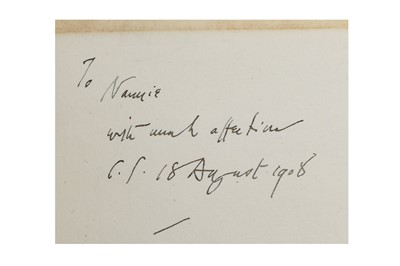 To
Nannie
with much affection
C. S. 18 August 1908